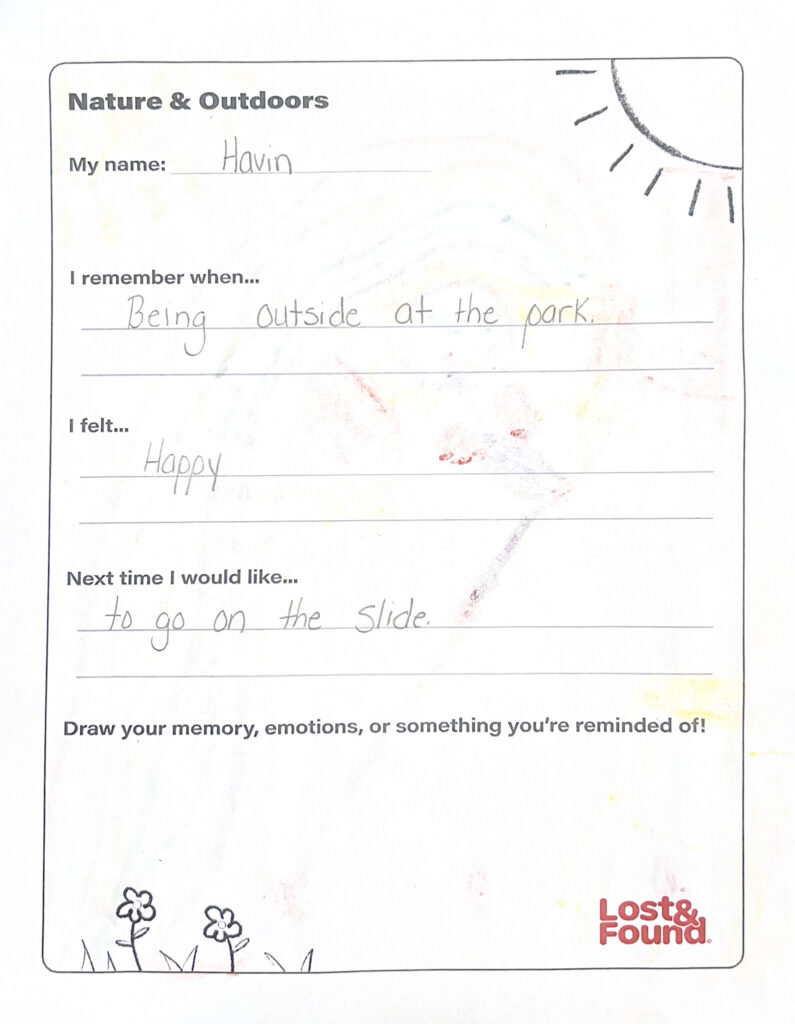 Nature & Outdoors
My name: Havin
I remember when...
Being outside at the park.
I felt...
Happy
Next time I would like...
to go on the slide.
Draw your memory, emotions, or something you're reminded of!
Lost&
Found.